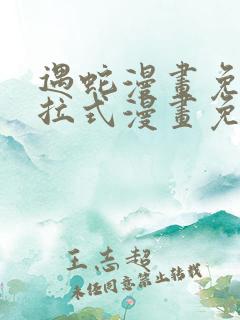 遇蛇漫畫免
拉式漫畫免
王志超
未经同意禁止转载